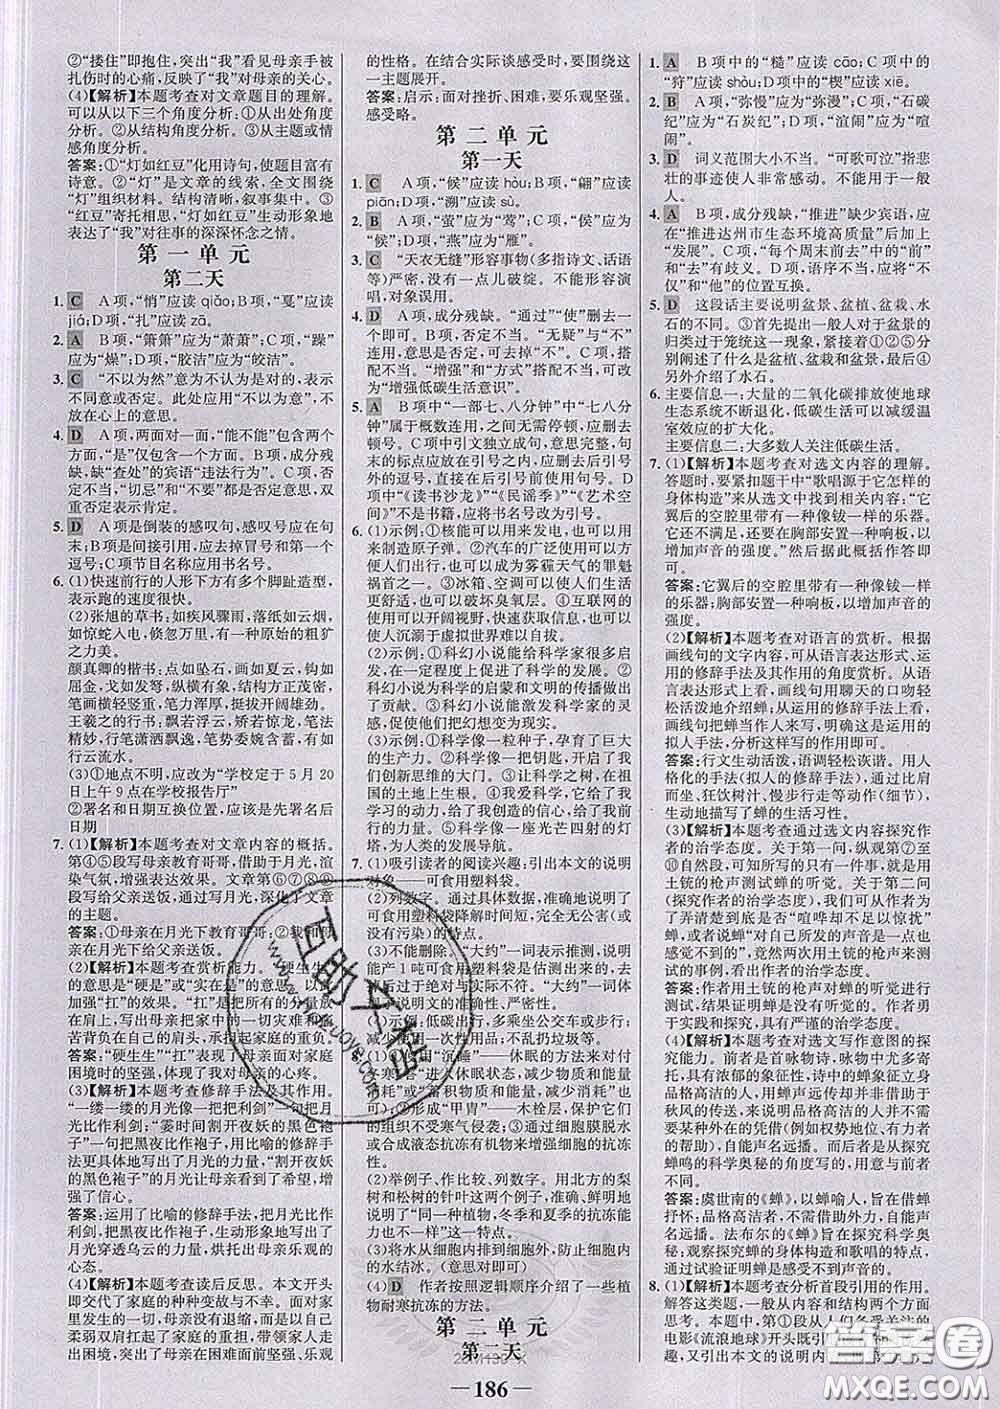 ②“搂住”即抱住，突出“我”看见母亲手被
扎伤时的心痛，可见“我”对母亲的关心。
(4)【解析】本题考查对文章题目的理解。
可以从以下三个角度分析：①从点出对象
角度分析。②从结构角度分析。③从主题或情
感角度分析。
答案：①“灯如红豆”化用诗句，使题目富有
诗意。②“灯”是文章的线索，全文围绕
“灯”组织材料。结构清晰，叙事集中。③
“红豆”寄托相思，“灯如红豆”生动形象地
表达了“我”对往事的深深怀念之情。
第一单元
第二天
1. C　A项，“悄”应读qiǎo；B项，“戛”应读
jiá；D项，“扎”应读zā。
2. A　B项，“箫箫”应为“萧萧”；C项，“躁”
应为“燥”；D项，“胶洁”应为“皎洁”。
3. C　“不以为然”意为不认为是对的，表示
不同意或否定。此处应用“不以为意”，不
放在心上的意思。
4. D　A项，两面对一面，“能不能”包含两个
方面，“是”仅包含一个方面。B项，成分残
缺，缺“查处”的宾语“违法行为”。C项，否
定不当，“切忌”和“不要”都是否定，表示双
重否定表示肯定。
5. D　A项是倒装的感叹句，感叹号应在句
末；B项是间接引用，应去掉冒号和单引
号；C项节目名称应用书名号。
6. (1)快速前行的人形下方有多个脚趾造型，
表示跑的速度很快。
(2)张旭的草书：如疾风骤雨，落纸如云烟，
如惊蛇入电，倏忽万里，有一种原始的粗犷
之力美。
颜真卿的楷书：点如坠石，画如夏云，钩如
屈金，戈如发弩，纵横有象，结构方正茂密，
笔画横轻竖重，笔力浑厚，挺拔开阔雄劲。
王羲之的行书：飘若浮云，矫若惊龙，笔法
精妙，行笔潇洒飘逸，笔势委婉含蓄，有如
行云流水。
(3)①地点不明，应改为“学校定于5月20
日上午9点在学校报告厅”
②署名和日期互换位置，应该是先署名后
日期
7. (1)【解析】本题考查对文章内容的概括。
第④⑤段写母亲教育哥哥，借助于月光，
渲染气氛，增强表达效果。文章第⑥⑦⑧⑨
段写给父亲送饭，通过写月光，深化了文章
的主题。
答案：①母亲在月光下教育哥哥；②我和母
亲在月光下给父亲送饭。
(2)【解析】本题考查赏析能力。“硬生生”
的意思是“硬是”或“实在是”的意思，
“扛”的意思是把所有的分量放
在肩上，写出母亲把家中的一切灾难和痛
苦背负在自己的肩头，承担起家庭的重负。
答案：“硬生生”“扛”表现了母亲面对家庭
困境时的坚强，体现了我对母亲的心疼。
(3)【解析】本题考查修辞手法及其作用。
“一缕一缕的月光像一把把利剑”一句把月
光比作利剑；“霎时间就割开夜妖的黑色袍
子”一句把黑夜比作袍子，用比喻的修辞手
法写出了月光的力量，也用“割开夜妖的黑
色袍子”的月光让母亲看到了希望，增强了
信心。
答案：运用了比喻的修辞手法，把月光比作
利剑，把黑夜比作袍子，生动形象地写出了
月光穿透乌云的力量，烘托出母亲乐观的
心态。
(4)【解析】本题考查读后反思。本文开头
即交代了家庭的种种变故与不幸，面对家
里发生的一切，母亲没有退缩，而是以自己
柔弱双肩扛起了家庭的重担，带领家庭一
步步走出困境，突出表现了母亲坚强、乐观
的性格。在结合实际谈感受时，要围绕这
一主题展开。
答案：启示：面对挫折、困难，要乐观坚强。
感受略。
第二单元
第一天
1. C　A项，“候”应读hòu；B项，“翩”应读
piān；D项，“溯”应读sù。
2. B　A项，“萤”应为“莺”；C项，“侯”应为
“候”；D项，“燕”应为“雁”。
3. C　“天衣无缝”形容事物(多指诗文、话语
等)严密，没有一点儿破绽。不能形容演
唱，对象误用。
4. D　A项，成分残缺。“通过”“使”删去一
个即可。B项，否定不当。“无疑”与“不”
连用，意思是否定，可去掉“不”。C项，搭
配不当。“增强”和“方式”不能搭配，可改
为“增强低碳生活意识”。
5. A　B项中“一部七、八分钟”中“七八分
钟”属于概数，中间没有停顿，应删去
顿号。C项中引文独立成句，意思完整，句
末的标点应放在引号之内，应删去引号外
的逗号，直接在引号前使用句号。D
项中《读书沙龙》《民谣季》《艺术空
间》不是书籍，应将书名号改为引号。
6. (1)示例：①核能可以用来发电，也可以用
来制造原子弹。②汽车的广泛使用可以方
便人们出行，也可以成为雾霾天气的罪魁
祸首之一。③冰箱、空调可以使人们生活
更舒适，也可以破坏臭氧层。④互联网的
使用可以开阔视野，快速获取信息，也可以
使人沉溺于虚拟世界难以自拔。
(2)示例：①科幻小说能给科学家很多启
发，在一定程度上促进了科学的发展。②
科幻小说为科学的启蒙和文明的传播做出
了贡献。③科幻小说能激发科学家的灵
感，促使他们把幻想变为现实。
(3)示例：①科学像一粒种子，孕育了巨大
的生产力。②科学像一把钥匙，开启了我
们创新思维的大门。③让科学之树，在祖
国的土地上生根。④我爱科学，它给了我
学习的动力，给了我创造的信心，给了我前
行的榜样。⑤科学像一座光芒四射的灯
塔，为人类的发展导航。
7. (1)吸引读者的阅读兴趣；引出本文的说明
对象——可食用塑料袋。
(2)列数字。通过具体数据，准确地说明了
可食用塑料袋降解时间短，完全可以生物降解(或
没有污染)的特点。
(3)不能删除。“大约”一词表示推测，说明
能产1吨可食用塑料袋是估测出来的，去
掉则过于绝对，与实际不符。“大约”一词体
现了说明文语言的准确性、严密性。
(4)示例：低碳出行，多乘坐公交车或步行，
节约用水，节约用电，不乱扔垃圾等。
8. (1)①利用“沉睡”——休眠的方法来对付
寒害(或“进入休眠状态，减少消耗”
或“蓄积物质和能量，减少消耗”也
可)；②形成“甲胄”——木栓层，保护它们
的组织不受寒气侵袭；③通过细胞膜脱水
或合成液态抗冻有机物来增强细胞的抗冻
性。
(2)举例子、作比较、列数字。用北方的梨
树和松树的针叶这两种植物，具体准确地
说明了“同一种植物，冬季和夏季的抗冻能
力也不一样”这一特点。
(3)将水从细胞内排到细胞外，避免细胞内
的水结冰。(意思对即可)
(4) D　作者按照逻辑顺序介绍了一些植
物耐寒抗冻的方法。
第二单元
第二天
1. A　B项中的“糙”应读cāo；C项中的
“狩”应读shòu；D项中的“楔”应读xiē。
2. B　A项，“弥慢”应为“弥漫”；C项，“石碳
纪”应为“石炭纪”；D项，“渲闹”应为“喧
闹”。
3. D　词义范围大小不当。“可歌可泣”指悲
壮的事迹使人非常感动。不能用于一般
人。
4. A　B项，成分残缺，“推进”缺少宾语，应
在“推进达州市生态环境高质量”后加上
“发展”。C项，“每个周末前去”中的“前”
和“去”有歧义。D项，语序不当，应将“不
仅”和“他”的位置互换。
5. D　这段话主要说明盆景、盆植、盆栽、水
石的不同。③首先提出一般人对于盆景的
归类过于笼统这一现象，紧接着①②⑤分
别阐述了什么是盆植、盆栽和盆景，最后④
另外介绍了水石。
6. 主要信息一：大量的二氧化碳排放使地球
生态系统不断退化，低碳生活可以减缓温
室效应的扩大化。
主要信息二：大多数人关注低碳生活。
7. (1)【解析】本题考查对选文内容的理解。
答题时，要抓紧题干中“歌唱源于它怎样的
身体构造”来从选文中寻找相关语句，“它
翼后的空腔里带有一种像钹一样的乐器。
它还不满足，还要在胸部安置一种响板，以
增加声音的强度。”然后据此概括作答即
可。
答案：它翼后的空腔里带有一种像钹一样
的乐器；胸部安置一种响板，以增加声音的
强度。
(2)【解析】本题考查对语言的赏析。根据
画线句的文字内容，可以从语言表达形式
和运用的修辞手法及其作用的角度赏析。从语
言表达形式上看，画线句用聊天的口吻轻
松活泼地介绍蝉；从运用的修辞手法上看，
画线句把蝉当作人来写，明确这是运用的
拟人手法，分析这样写的作用即可。
答案：行文生动活泼，语调轻松诙谐。用人
格化的手法(拟人的修辞手法)，写出蝉爬
出虚土、狂饮树汁、慢步行走等动作(细节)，生
动地介绍了蝉的生活习性。
(3)【解析】本题考查通过选文内容探究作
者的治学态度。关于第一问，纵观第⑦至
⑩自然段，可知所写的只有一件事，就是用
土铳的枪声测试蝉的听觉。关于第二问
(探究作者的治学态度)，我们可以从作者为
了弄清楚蝉到底“喧哗却不足以惊扰”
或蝉与“蝉对自己所发的声音是否也一无所
觉”的疑惑，竟然两次用土铳的枪声来测试
蝉的听觉，看出作者的治学态度。
答案：作者用土铳的枪声对蝉的听觉进行
测试，结果证明蝉是没有听觉的。作者勇于
实践、探索和求真，具有严谨的治学态度。
(4)【解析】本题考查对选文写作意图的探
究能力。首先是咏物诗，咏物中尤多寄托，
具有浓郁的象征性。诗中的蝉象征着人的
高洁品格，表达了蝉声远播并非是借助于
秋风的传送，进而说明品格高洁的人并不
需要某种外在的凭借(例如权势地位、有力者
的帮助)，自能声名远播。而后者是从探究
蝉鸣的科学奥秘的角度写的，可据此分析。
答案：虞世南的《蝉》，以蝉喻人，旨在借蝉
抒怀：品格高洁者，不需借助外在的凭借，自能
声名远播。法布尔的《蝉》，旨在探究科学
奥秘；观察探究蝉的身体构造和歌唱的特点，
通过试验证明蝉是听不到声音的。
8. (1)【解析】本题考查分析首段引用的作用。
解答这类题，一般要从内容和结构上来
考虑。从内容上，从人们备受关注的
电影《流浪地球》开头既可引起读者的兴
趣，又引出本文的说明内容。
186
互助文档
www.hzhuowen.com
答案圈
MXQE.COM